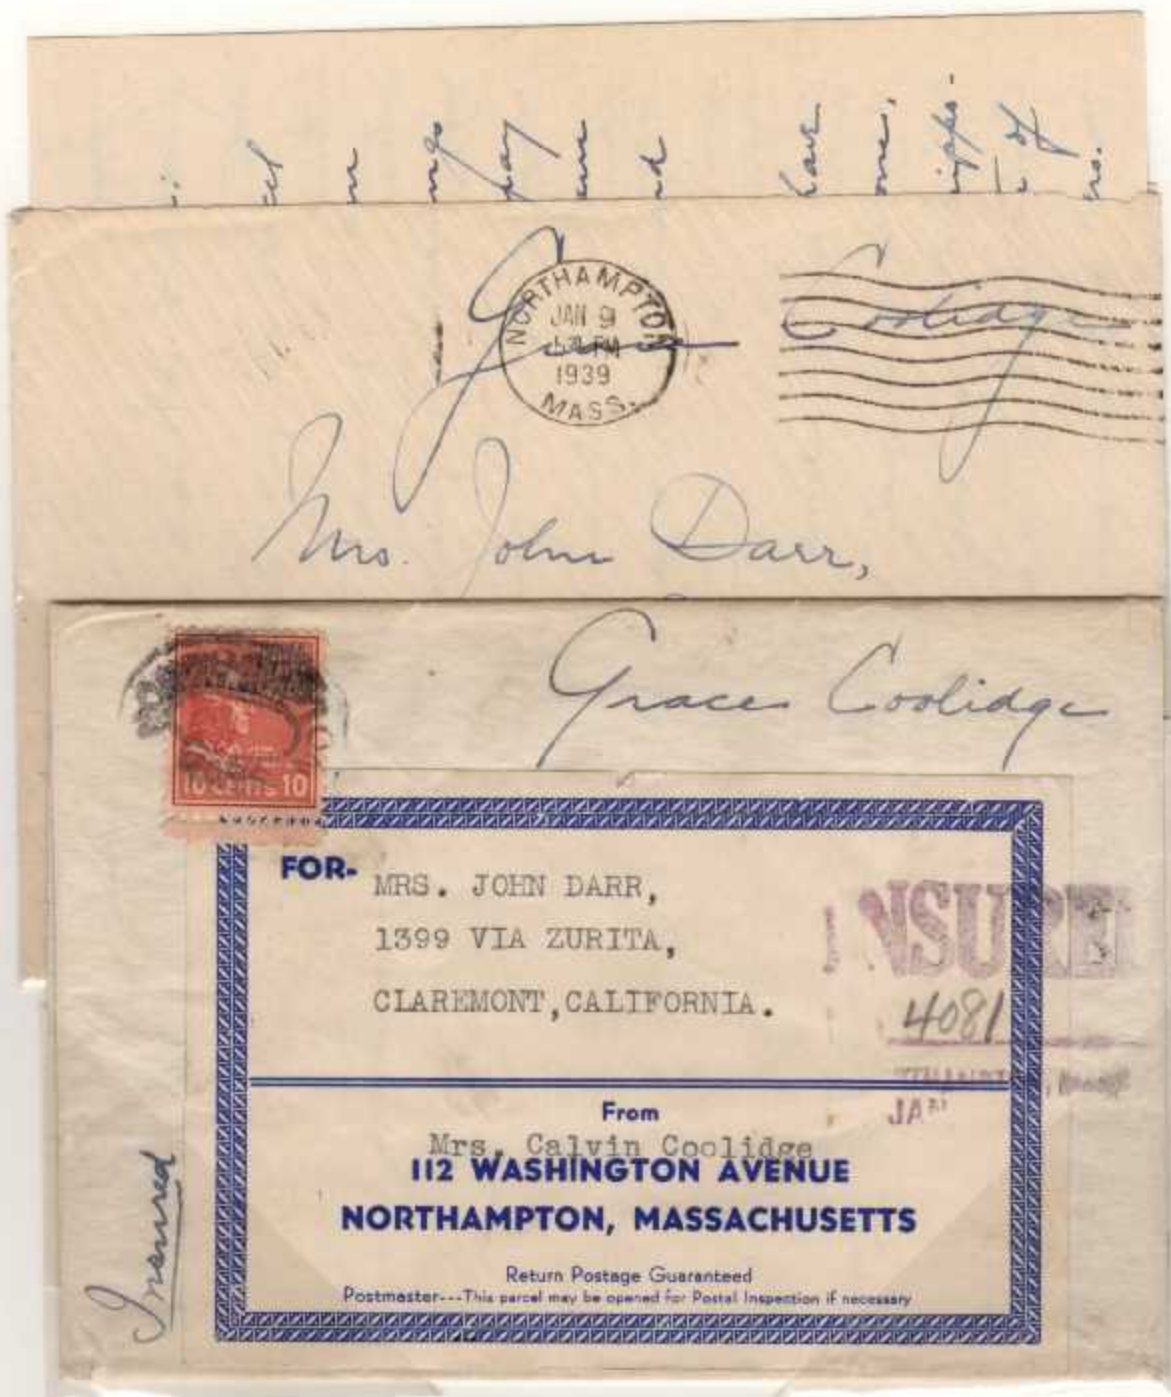 have
one,
of
pay
Grace Coolidge
NORTHAMPTON
JAN 9
PM
1939
MASS.
Mrs. John Darr,
Grace Coolidge
10 CENTS 10
FOR-
MRS. JOHN DARR,
1399 VIA ZURITA,
CLAREMONT,CALIFORNIA.
INSURED
4081
From
Mrs. Calvin Coolidge
112 WASHINGTON AVENUE
NORTHAMPTON, MASSACHUSETTS
Return Postage Guaranteed
Postmaster---This parcel may be opened for Postal Inspection if necessary
Insured